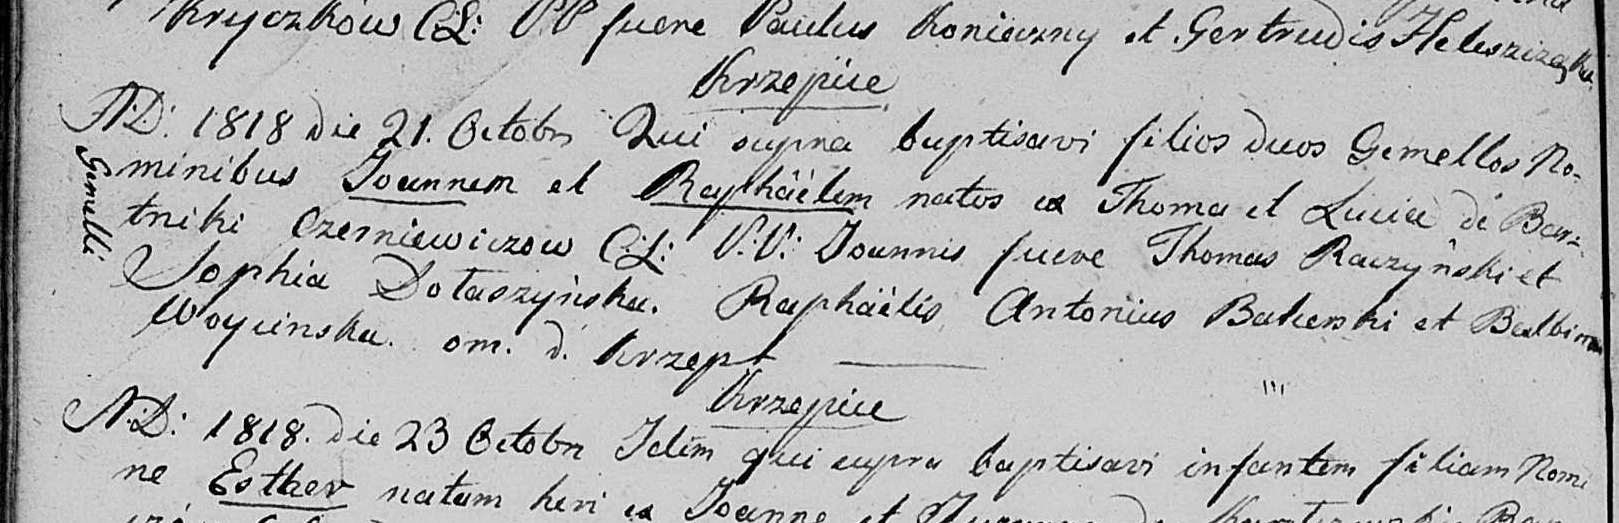 Kryczków C:L: PP fuere Paulus Konieczny et Gertrudis
Krzepice
A:D: 1818 die 21. Octobr Qui supra baptisavi filios duos Gemellos No-
minibus Joannem et Raphäëlem natos ex Thoma et Lucia de Bar-
Gemelli
tniki Czerniewiczow C:L: P:P: Joannis fuere Thomas Raczyński et
Sophia Dotaszyńska. Raphäëlis Antonius Bakerski et Balbina
Woycinska. om. d. Krzep
Krzepice
A:D: 1818. die 23 Octobr Idem qui supra baptisavi infantem filiam Nomi
ne Esther natam heri ex Joanne et